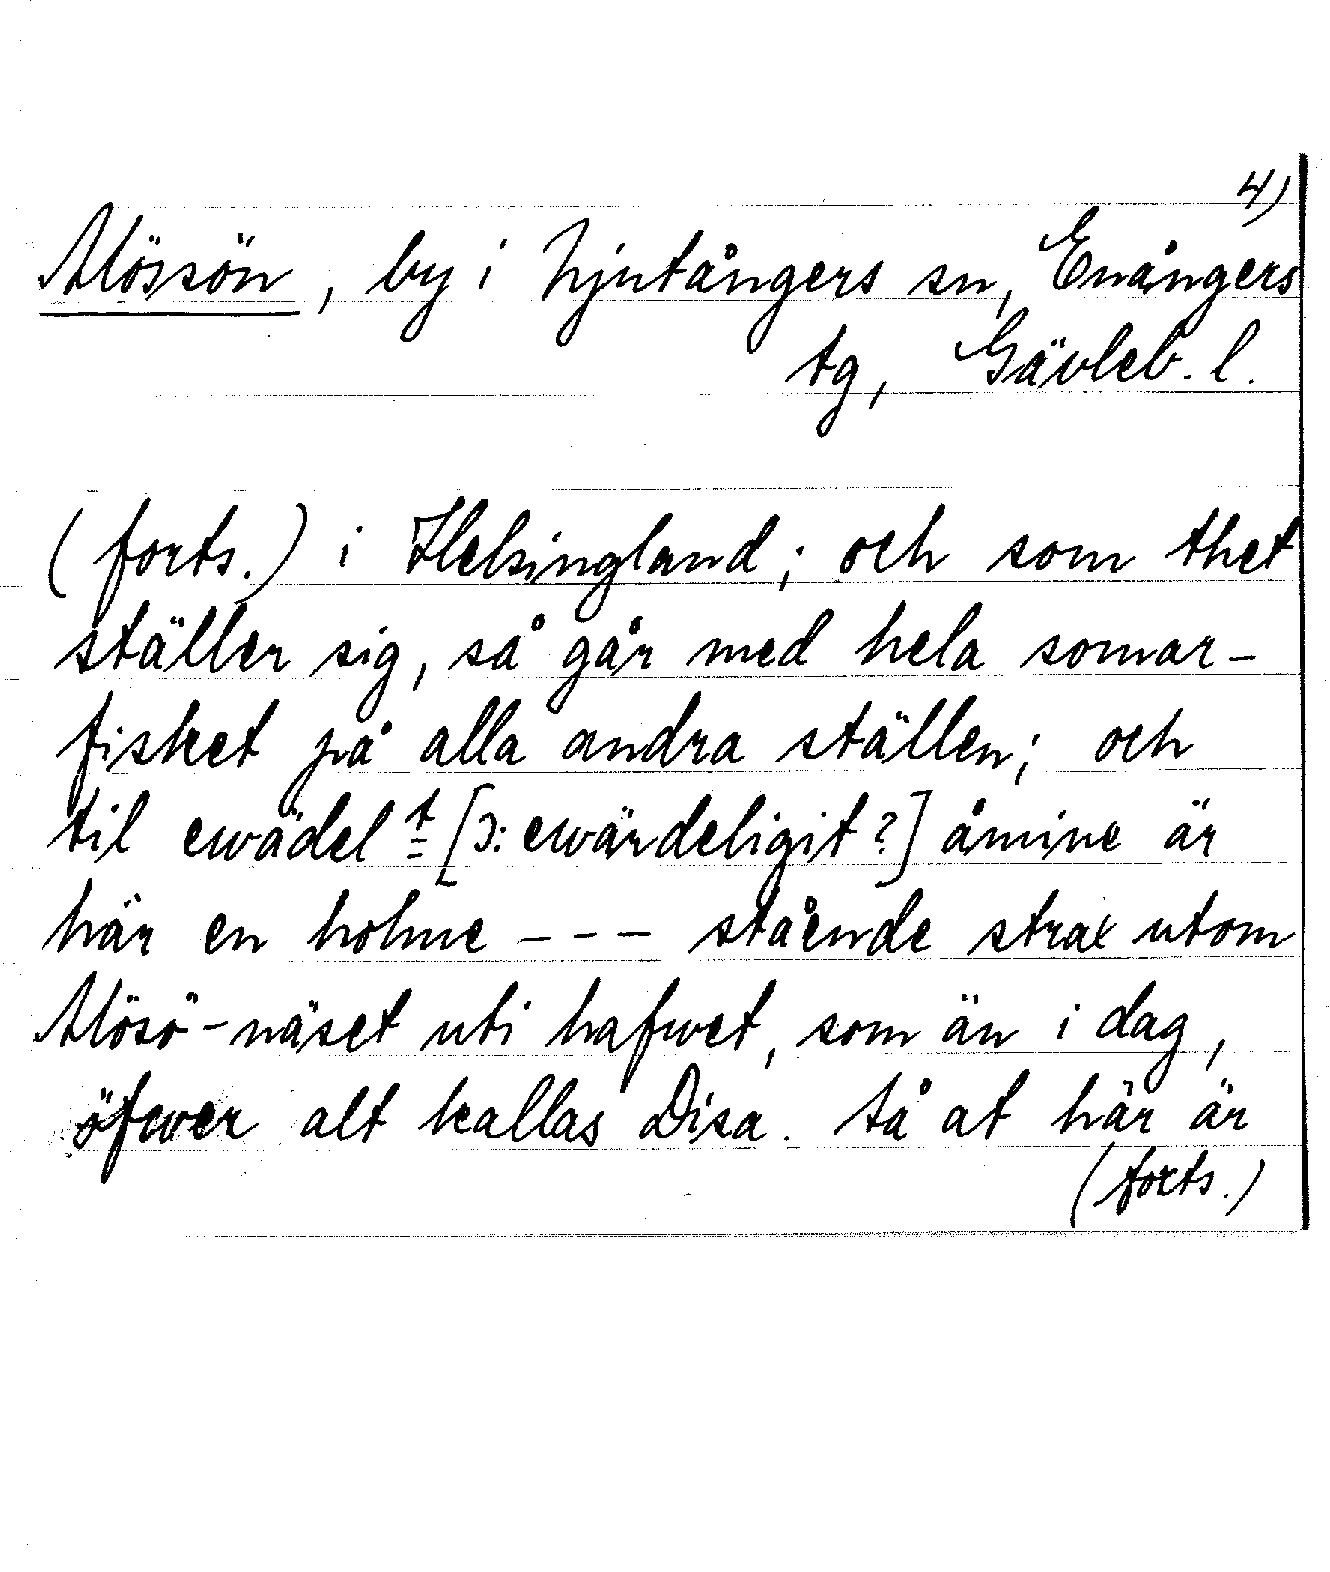 4)
Mössön, by i Njutångers sn, Enångers
tg, Gävleb. l.
(forts.) i Helsingland; och som thet
ställer sig, så går med hela somar-
fisket på alla andra ställen; och
til ewädel t [ɔ: ewärdeligit?] åmine är
här en holme - - - stående strax utom
Mösö-näset uti hafwet, som än i dag,
öfwer alt kallas Disa. tå at här är
(forts.)